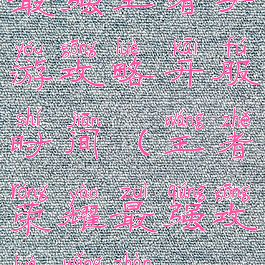 最强王者手
yóu gōng lüè kāi fú
游攻略开服
shí jiān wáng zhě
时间（王者
róng yào zuì qiáng gōng
荣耀最强攻